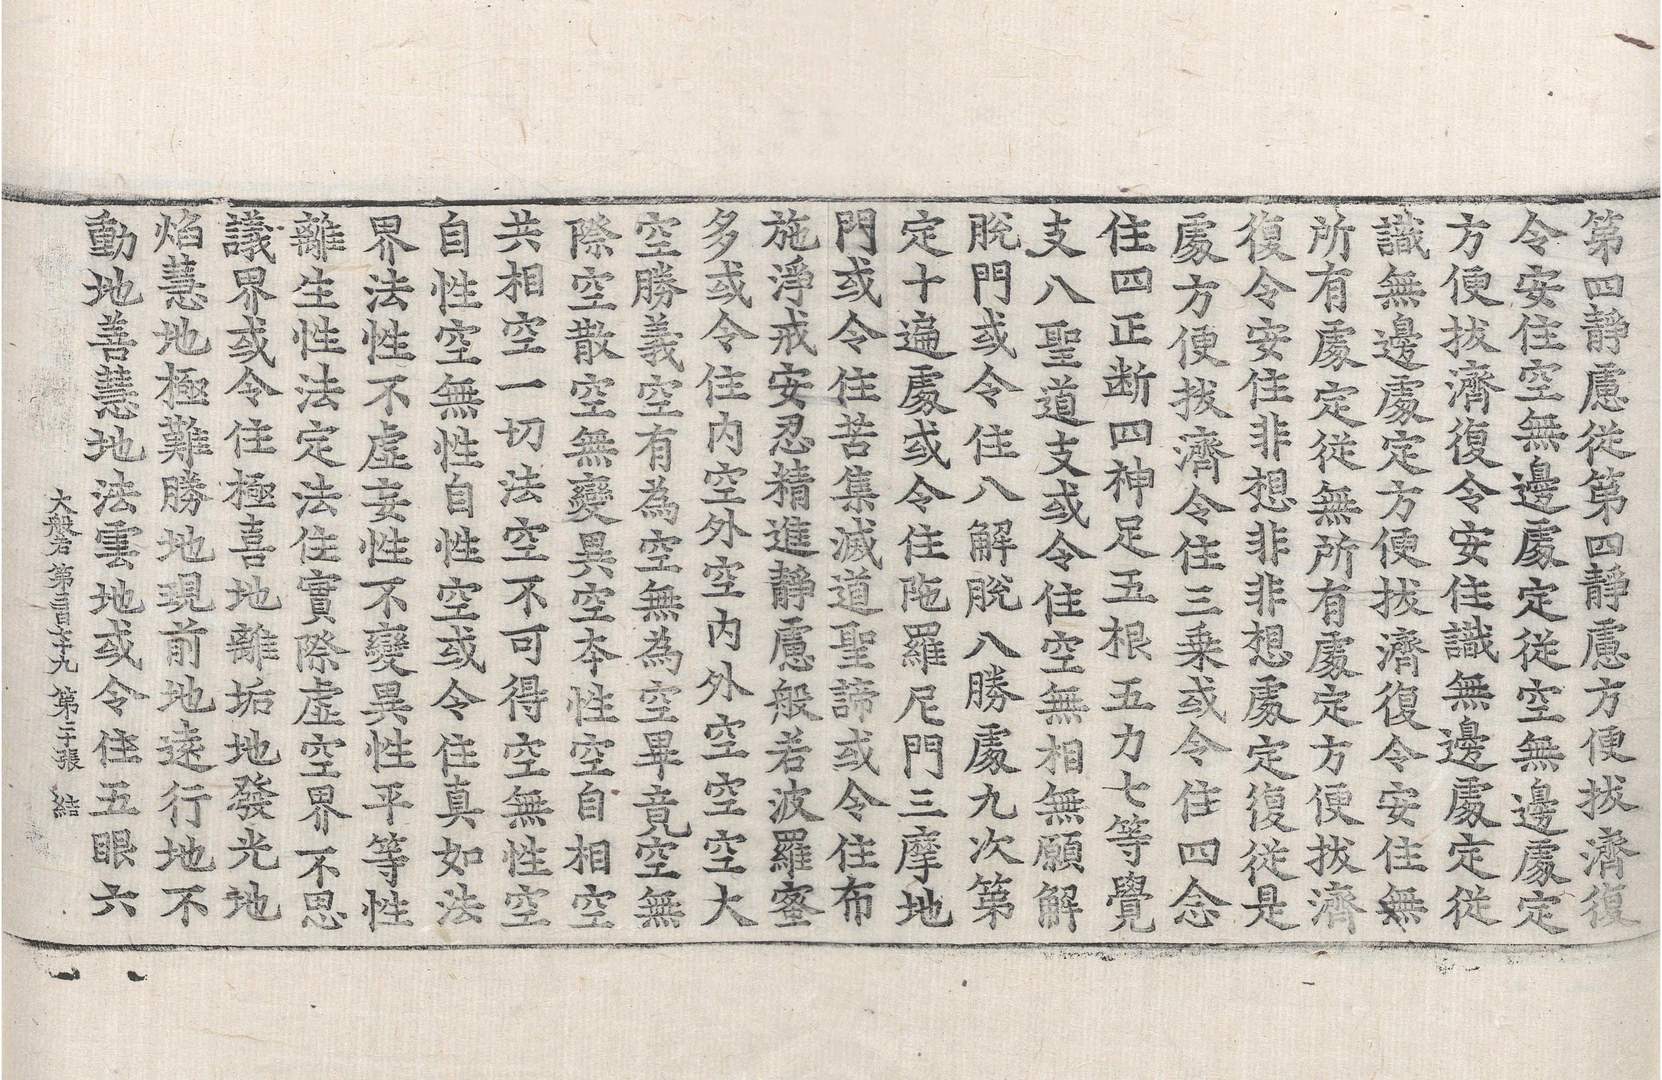 第四靜慮從第四靜慮方便拔濟復
令安住空無邊處定從空無邊處定
方便拔濟復令安住識無邊處定從
識無邊處定方便拔濟復令安住無
所有處定從無所有處定方便拔濟
復令安住非想非非想處定復從是
處方便拔濟令住三乘或令住四念
住四正断四神足五根五力七等覺
支八聖道支或令住空無相無願解
脫門或令住八解脫八勝處九次第
定十遍處或令住陁羅尼門三摩地
門或令住苦集滅道聖諦或令住布
施淨戒安忍精進靜慮般若波羅蜜
多或令住內空外空內外空空空大
空勝義空有為空無為空畢竟空無
際空散空無變異空本性空自相空
共相空一切法空不可得空無性空
自性空無性自性空或令住真如法
界法性不虛妄性不變異性平等性
離生性法定法住實際虛空界不思
議界或令住極喜地離垢地發光地
焰慧地極難勝地現前地遠行地不
動地善慧地法雲地或令住五眼六
大般若第三百六十九 第二十張 結